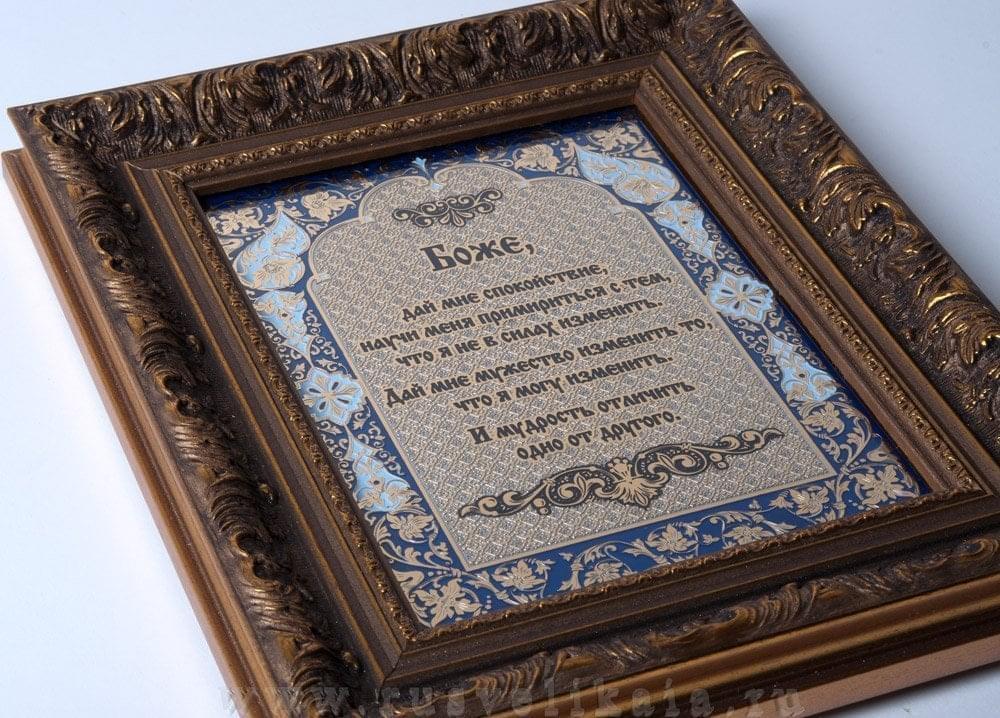 Боже,
дай мне спокойствие,
научи меня примириться с тем,
что я не в силах изменить.
Дай мне мужество изменить то,
что я могу изменить.
И мудрость отличить
одно от другого.
www.rusvelikaia.ru